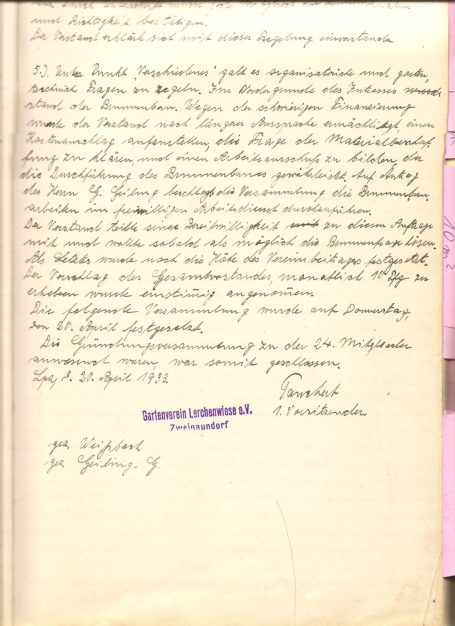 und Richtigkeit bestätigen.
Der Vorstand erklärt sich mit dieser Regelung einverstanden
5.) Unter Punkt "Verschiedenes" galt es organisatorische und garten-
technisch Fragen zu regeln. Im Vordergrunde des Interesses
stand der Brunnenbau. Wegen der schwierigen Finanzierung
wurde der Vorstand nach längerer Aussprache ermächtigt einen
Kostenanschlag anfertigen, die Frage der Materialbeschaf
fung zu klären, und einen Arbeitsausschuß zu bilden, der
die Durchführung des Brunnenbaues gewährleistet. Auf Antrag
des Herrn G. Geiling beschloß die Versammlung die Brunnen
arbeiten im freiwilligen Arbeitsdienst durchzuführen.
Der Vorstand teilte seine Bereitwilligkeit zu diesem
mit und wollte sobald als möglich die Brunnenfrage lösen.
Als Letztes wurde noch die Höhe des Vereinsbeitrages festgesetzt.
Der Vorschlag des Gesamtvorstandes, monatlich 10 Pfg zu
erheben wurde einstimmig angenommen.
Die folgende Versammlung wurde auf Donnerstag,
den 20. April festgesetzt.
Die Gründungsversammlung zu der 24. Mitglieder
anwesend waren, war somit geschlossen.
Lpz, d. 20. April 1933.
Tauchert
1. Vorsitzender
Gartenverein Lerchenwiese e.V.
Zweinaundorf
gez Weißbach
gez Geiling. G.
10 m²